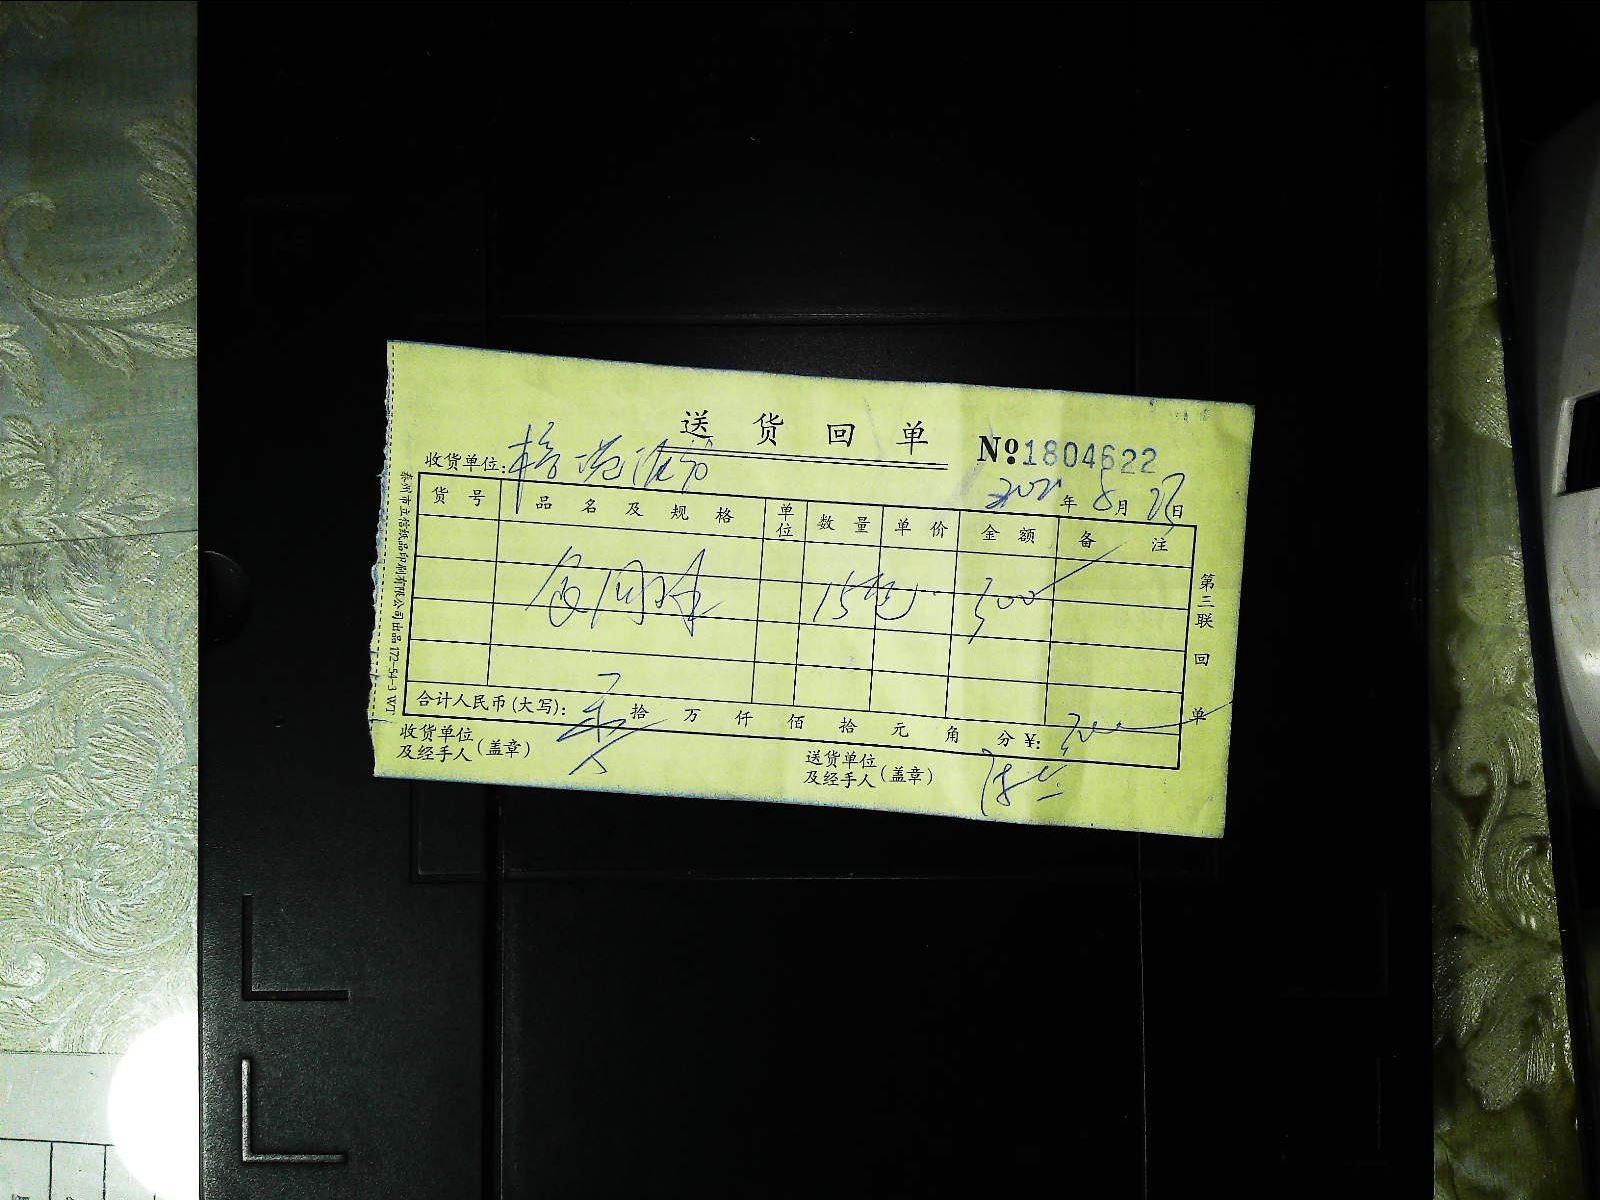 送货回单
No 1804622
收货单位:
2021年8月27日
货号 品名及规格 单位 数量 单价 金额 备注
15包 300
合计人民币(大写): 拾万仟佰拾元角分¥: 300
收货单位及经手人(盖章)
送货单位及经手人(盖章)
第三联 回单
泰州市立信纸品印刷有限公司出品 172-54-3 WT